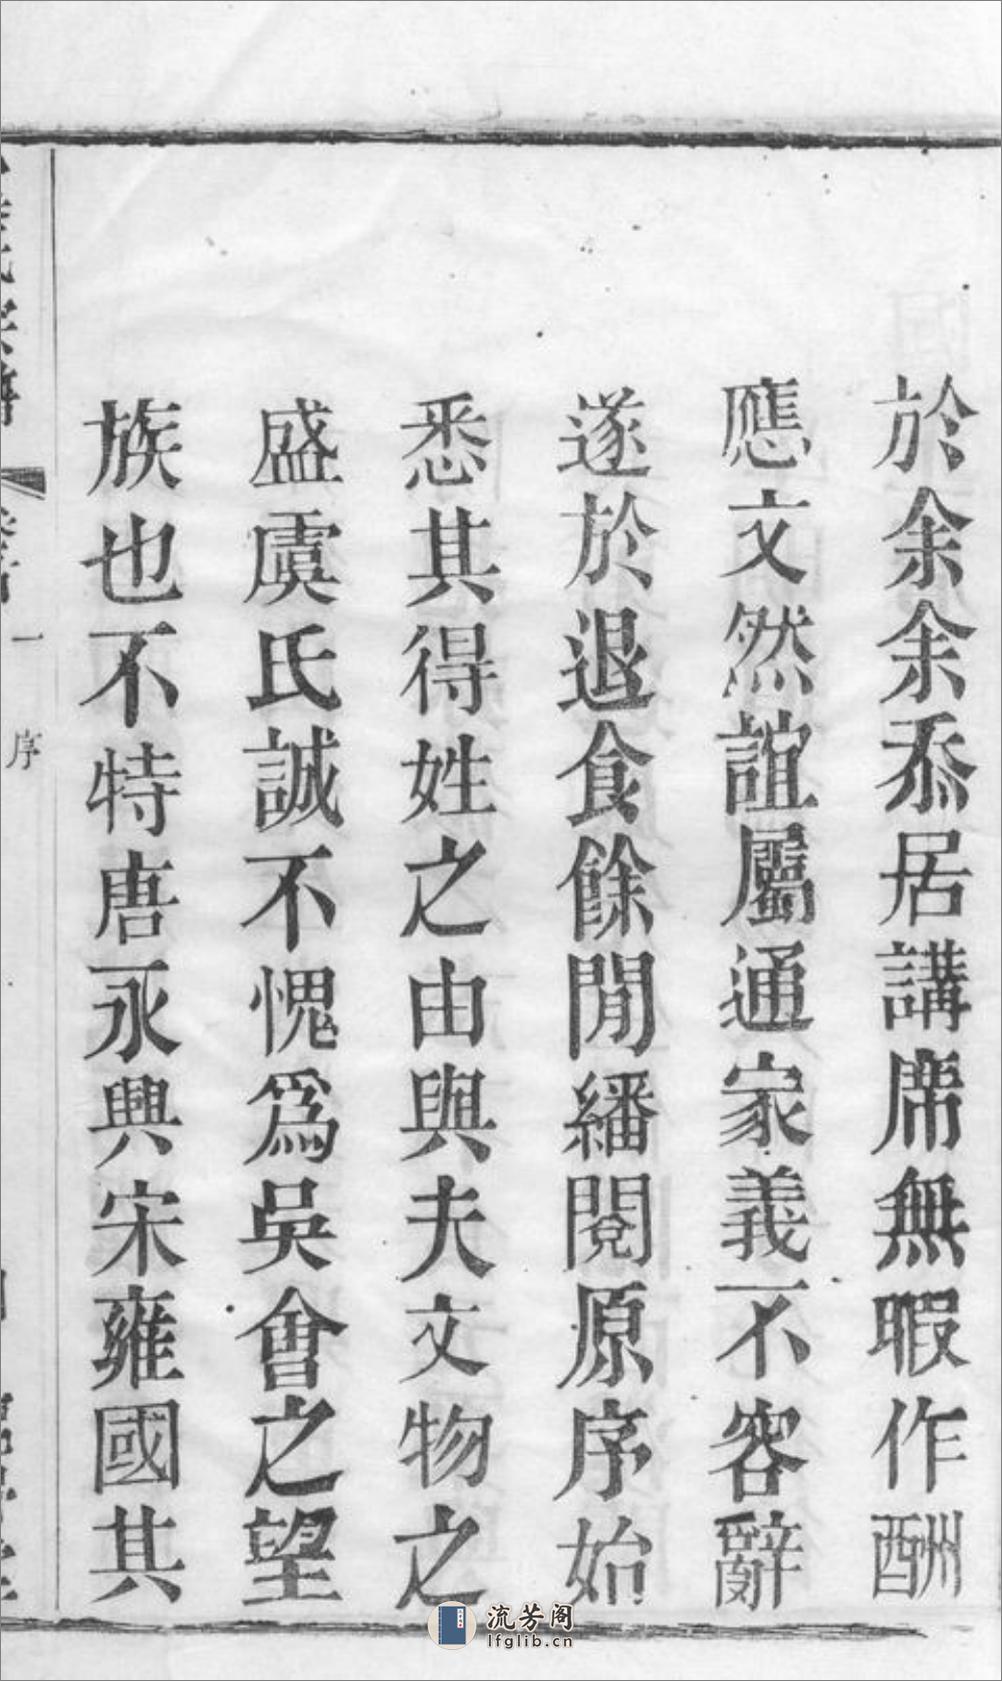 於余余忝居講席無暇作酬
應文然誼屬通家義不容辭
遂於退食餘閒繙閱原序始
悉其得姓之由與夫文物之
盛虞氏誠不愧爲吳會之望
族也不特唐永興宋雍國其
一
序
流芳阁
lfglib.cn